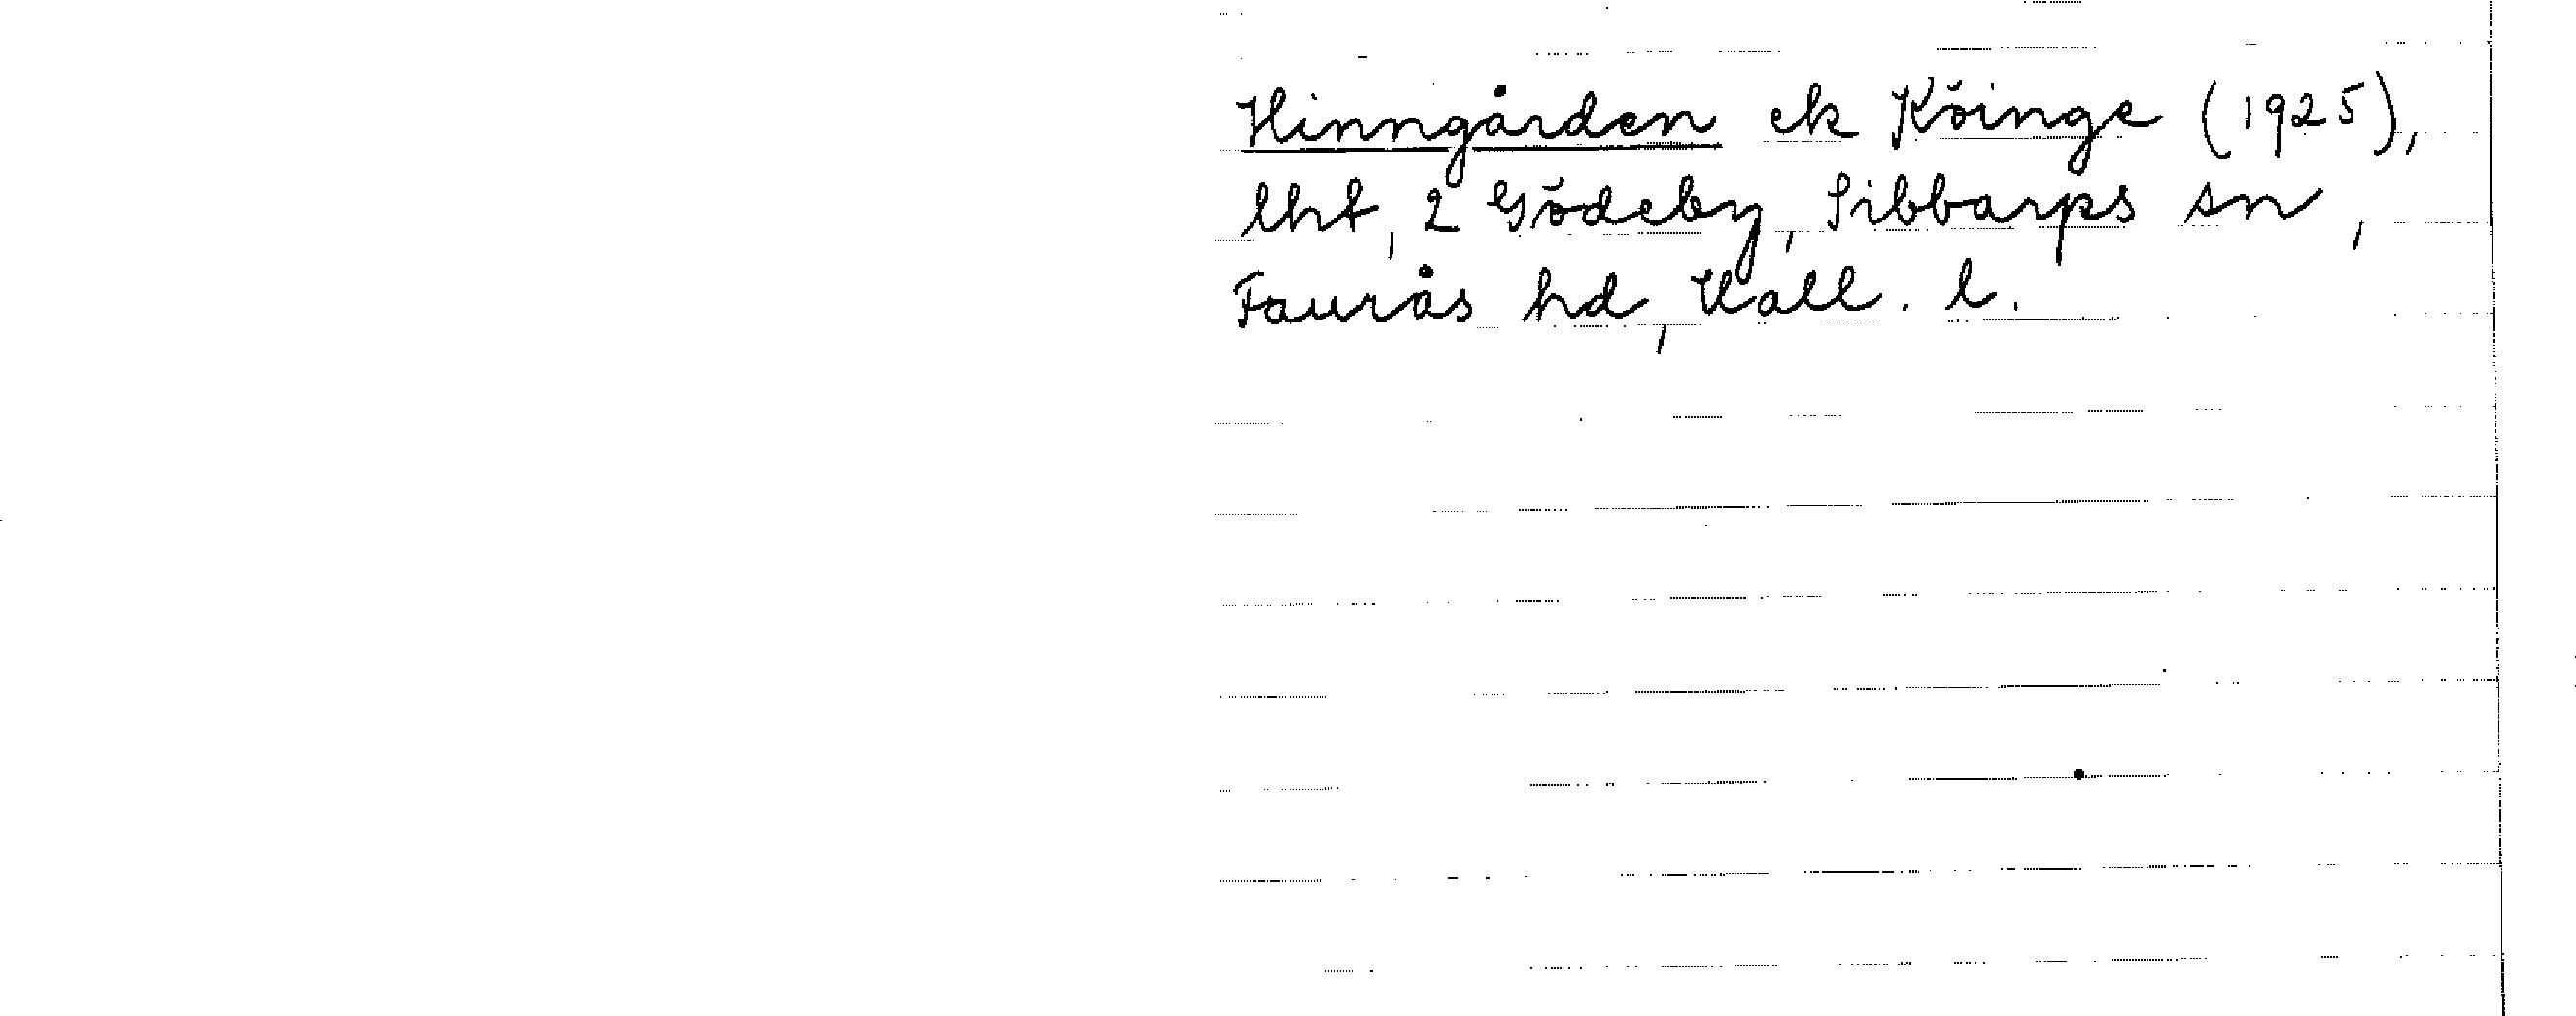 Hinngården ek Köinge (1925),
lht, 2 Gödeby, Sibbarps sn,
Faurås hd, Hall. l.